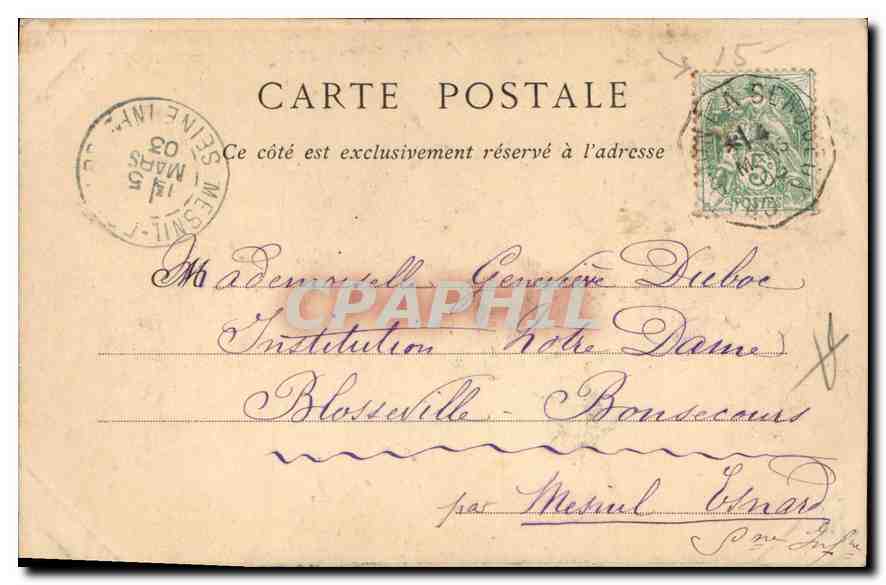 15
CARTE POSTALE
Ce côté est exclusivement réservé à l'adresse
MESNIL- SEINE INF
15
MARS
03
5
POSTES
Mademoiselle Geneviève Duboc
CPAPHIL
Institution Notre Dame
Blosseville - Bonsecours
par Mesnil Esnard
Sne Infre